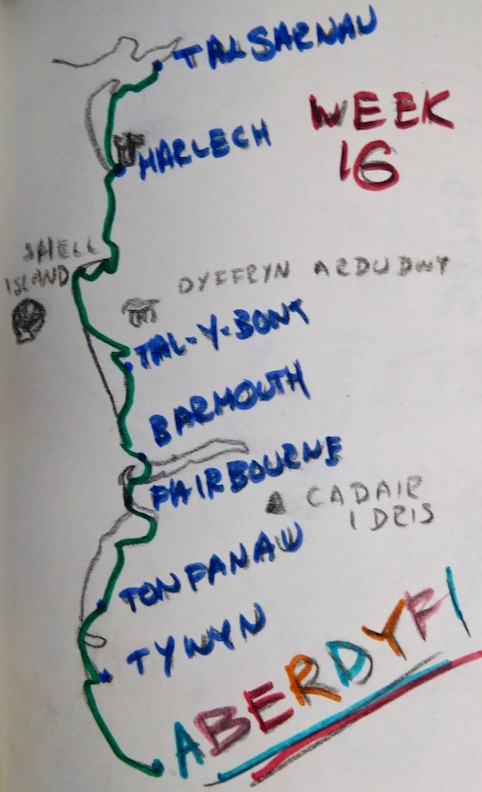 TALSARNAU
WEEK
16
HARLECH
SHELL
ISLAND
DYFFRYN ARDUDWY
TAL-Y-BONT
BARMOUTH
FAIRBOURNE
CADAIR
IDRIS
TONFANAU
TYWYN
ABERDYFI